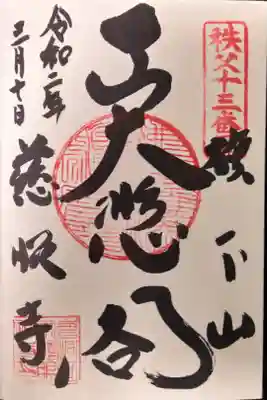 秩父十三番
旗下山
正大悲閣
令和二年
三月十日
慈眼寺